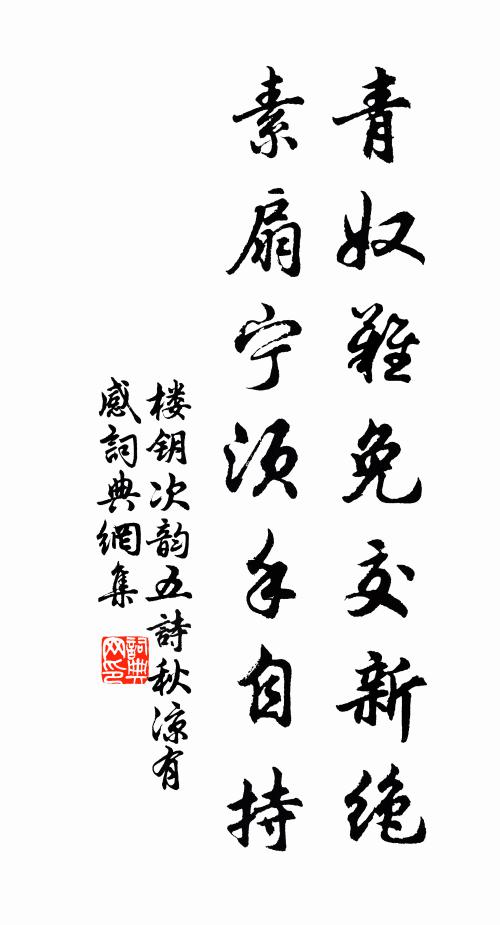 青奴难免交新绝
素扇宁须手自持
楼钥次韵五詩秋凉有
感詞典網集
詞典
网印